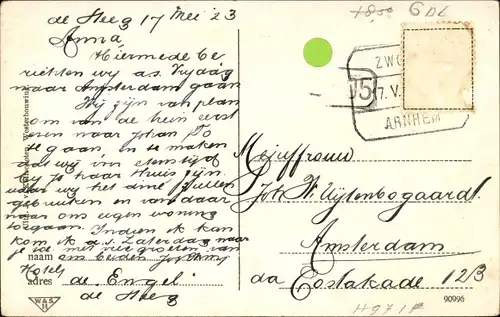 de Steeg 17 Mei '23
Anna,
Hiermede be
richten wij a.s. Vrijdag
naar Amsterdam gaan
Wij zijn van plan
om van de trein eerst
even naar Johan
te gaan, en te maken
dat wij im etenstijd
bij Jo haar thuis zijn.
waar wij het diné zullen
gebruiken en van daar
naar ons eigen woning
te gaan. Indien ik kan
kom ik d.s. Zaterdag naar
je toe met vele groeten van
ons beiden
naam
Hotel
adres de "Engel"
de Steeg
W&S
H
+850 6
ZW
V5
7.V.
ARNHEM
Mejuffrouw
Joh. W. Uijtenbogaard
Amsterdam
da Costakade 12/3
90996
H 971 F